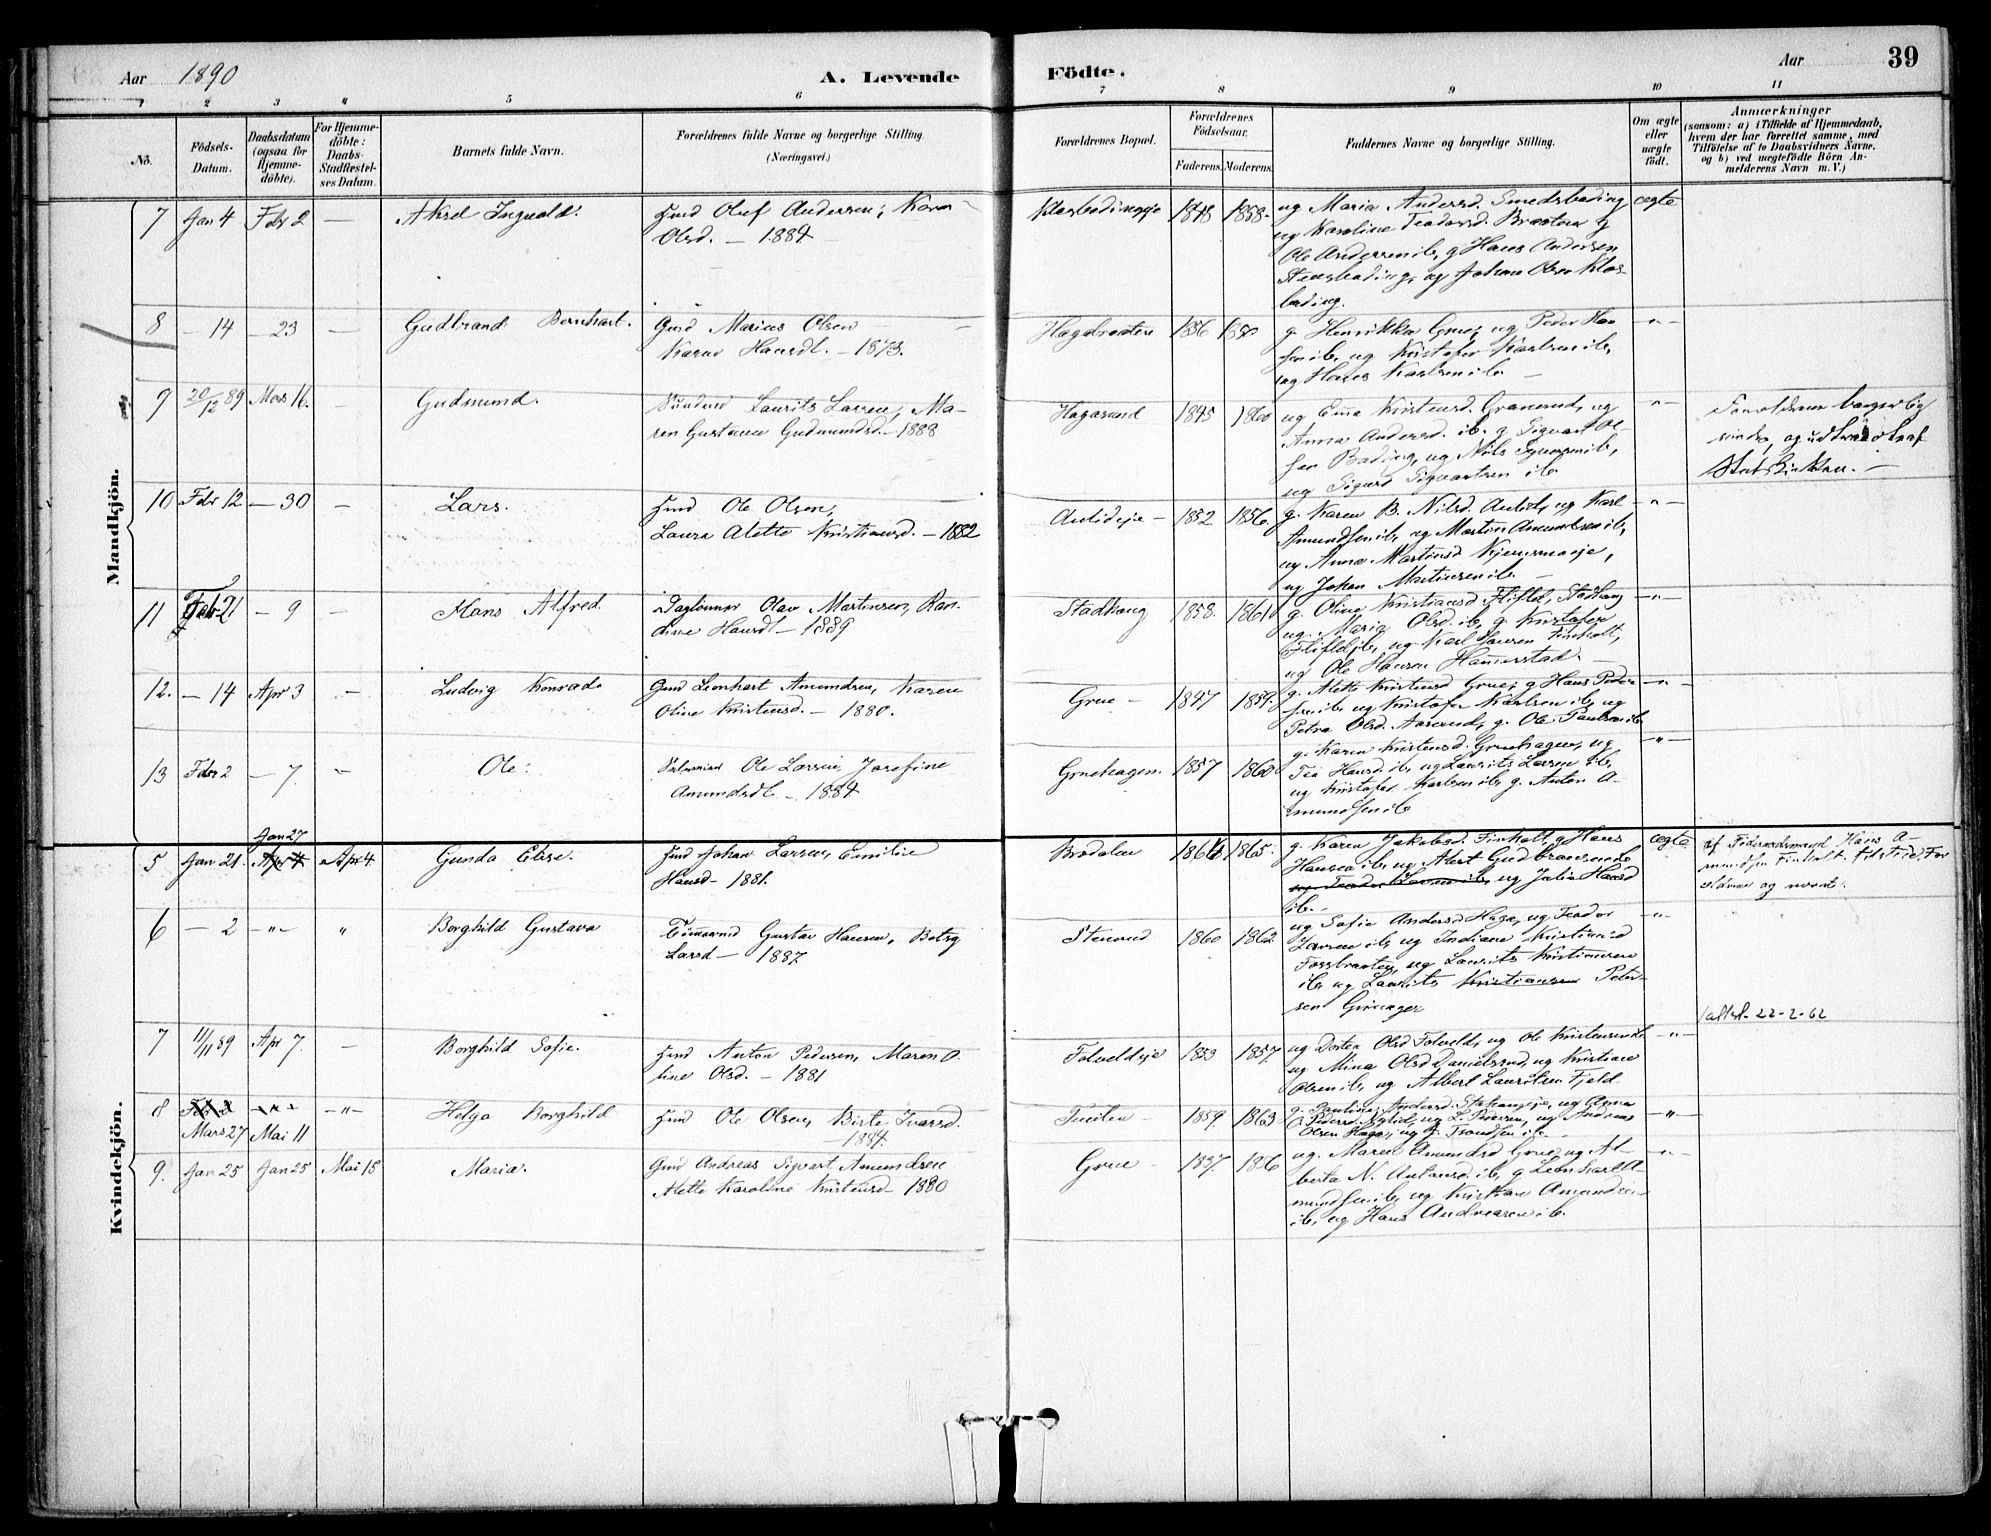 Aar 1890 A. Levende Födte. Aar 39
1 2 3 4 5 6 7 8 9 10 11
No.
Födsels-Datum.
Daabsdatum (ogsaa for Hjemme-döbte).
For Hjemme-döbte: Daabs-Stadfæstel-ses Datum.
Barnets fulde Navn.
Forældrenes fulde Navne og borgerlige Stilling. (Næringsvei.)
Forældrenes Bopæl.
Forældrenes Födselsaar.
Faderens. Moderens.
Faddernes Navne og borgerlige Stilling.
Om ægte eller uægte födt.
Anmærkninger
(saasom: a) i Tilfælde af Hjemmedaab,
hvem der har forrettet samme, med
Tilföielse af to Daabsvidners Navne,
og b) ved uægtefödte Börn An-
melderens Navn m. V.)
Mandkjön.
7 Jan 4 Febr 2 — Aksel Ingvald. Huud Oluf Andersen, Karen
Olsd. — 1884
Klosbødingeje 1848 1858
ug Maria Andersd. Smedsbøding ægte
ug Karoline Teodorsd. Braaten g
Ole Andersen ib, g Hans Andersen
Steensbøding, ug Johan Olsen Klos-
bøding.
8 — 14 — 23 — Gudbrand Bernhart. Gmd Marius Olsen
Karen Hansdt. — 1873.
Hagabraaten 1856 1850
g. Henrikka Grue, ug Peder Han- — " —
sen ib, ug Kristofer Karlsen ib,
ug Hans Karlsen ib —
9 20/12 89 Mars 16. — Gudmund. Laurits Larsen, Ma-
ren Gustava Gudmundsd. — 1888
Hagasand 1845 1860
ug Ema Kristensd. Granerud, ug — " —
Anna Andersd. ib. g Sigvart Ol-
sen Bøding, ug Nils ib,
ug Sigurd Sigvartsen ib
Forældrene borgerlig
viede, og udtraadt af
Statskirken. —
10 Febr 12 — 30 — Lars. Huud Ole Olsen,
Laura Alette Kristiansd. — 1882
Aulieje — 1852 1856.
g. Karen B. Nilsd. Auli, ug Karl — " —
Amundsen ib, ug Martin Amundsen ib,
ug Anna Martinsd Kjernmoeje,
ug Johan Martinsen ib —
11 Febr 21 — 9 — Hans Alfred. Daglønner Olav Martinsen, Ran-
dine Hansdt — 1889
Stadhaug 1858. 1861
g. Oline Kristiansd Fliflet, Stadhaug — " —
ug. Maria Olsd. ib, g. Kristofer
Flifletib, ug Karl Hansen Finholt,
ug Ole Hansen Hammerstad. —
12. — 14 Apr 3 — Ludvig Konrad. Gmd Leonhart Amundsen, Karen
Oline Kristensd. — 1880.
Grue — 1847 1859.
g. Alette Kristensd Grue, g Hans Peder- — " —
sen ib, ug Kristofer Karlsen ib, ug
Petra Olsd. Aarud, g. Ole Paulsen ib
13 Febr 2 — 7. — Ole. Ole Larsen, Josefine
Amundsdt. — 1884
Gruehagen. 1857 1860
g. Karen Kristensd. Gruehagen, ug — " —
Tea Hansd. ib, ug Laurits Larsen ib,
ug Kristofer Karlsen ib, g. Anton A-
mundsen ib
Kvindekjön.
5 Jan 21. Jan 27 Apr 4 Apr 4 Gunda Elise. Huud Johan Larsen, Emilie
Hansd — 1881.
Brødalen 1864 1865.
g. Karen Jakobsd. Finholt, g Hans ægte
Hansen ib, ug Alet Gudbransnde
ug Teodor Larsen ib, ug Julia Hansd
ib. —
af Hans A-
mundsen Finholt.
og
6 — 2 — " — " Borghild Gustava Gustav Hansen, Betsy
Larsd — 1887
Stenrud 1860 1862
ug Sofie Andersd Haga, ug Teodor — " —
Larsen ib, ug Indiane Kristiansd
Fossbraaten, ug Laurits Kristiansen
ib, ug Laurits Kristiansen Peter-
sen Grinager
7 11/11 89 Apr 7. — Borghild Sofie. Huud Anton Pedersen, Maren O-
line Olsd. — 1881
Folveldeje 1853 1857.
ug Dortea Olsd Folveld, ug Ole Kristensen ib — " —
ug Mina Olsd Danielsrud, ug Kristian
Olsen ib, ug Albert Lauritsen Fjeld
/attst. 22-2-62
8 Mars 27 Mai 11 — " — Helga Borghild Huud Ole Olsen, Birte Ivarsd.
— 1884
1859. 1863
g. Pauline Andersd. ug Anna — " —
ug L. Pedersen, ug Andreas
Olsen Haga, ug J. Trondsen ib —
9. Jan 25 Jan 25 Mai 15 Maria. Gmd Andreas Sigvart Amundsen
Alette Karoline Kristensd — 1880
Grue — 1857. 1856
ug. Maren Amundsd Grue, ug Al- — " —
berta N. ib, g Leonhart A-
mundsen ib, ug Kristian Amundsen
ib, ug Hans Andreasen ib.